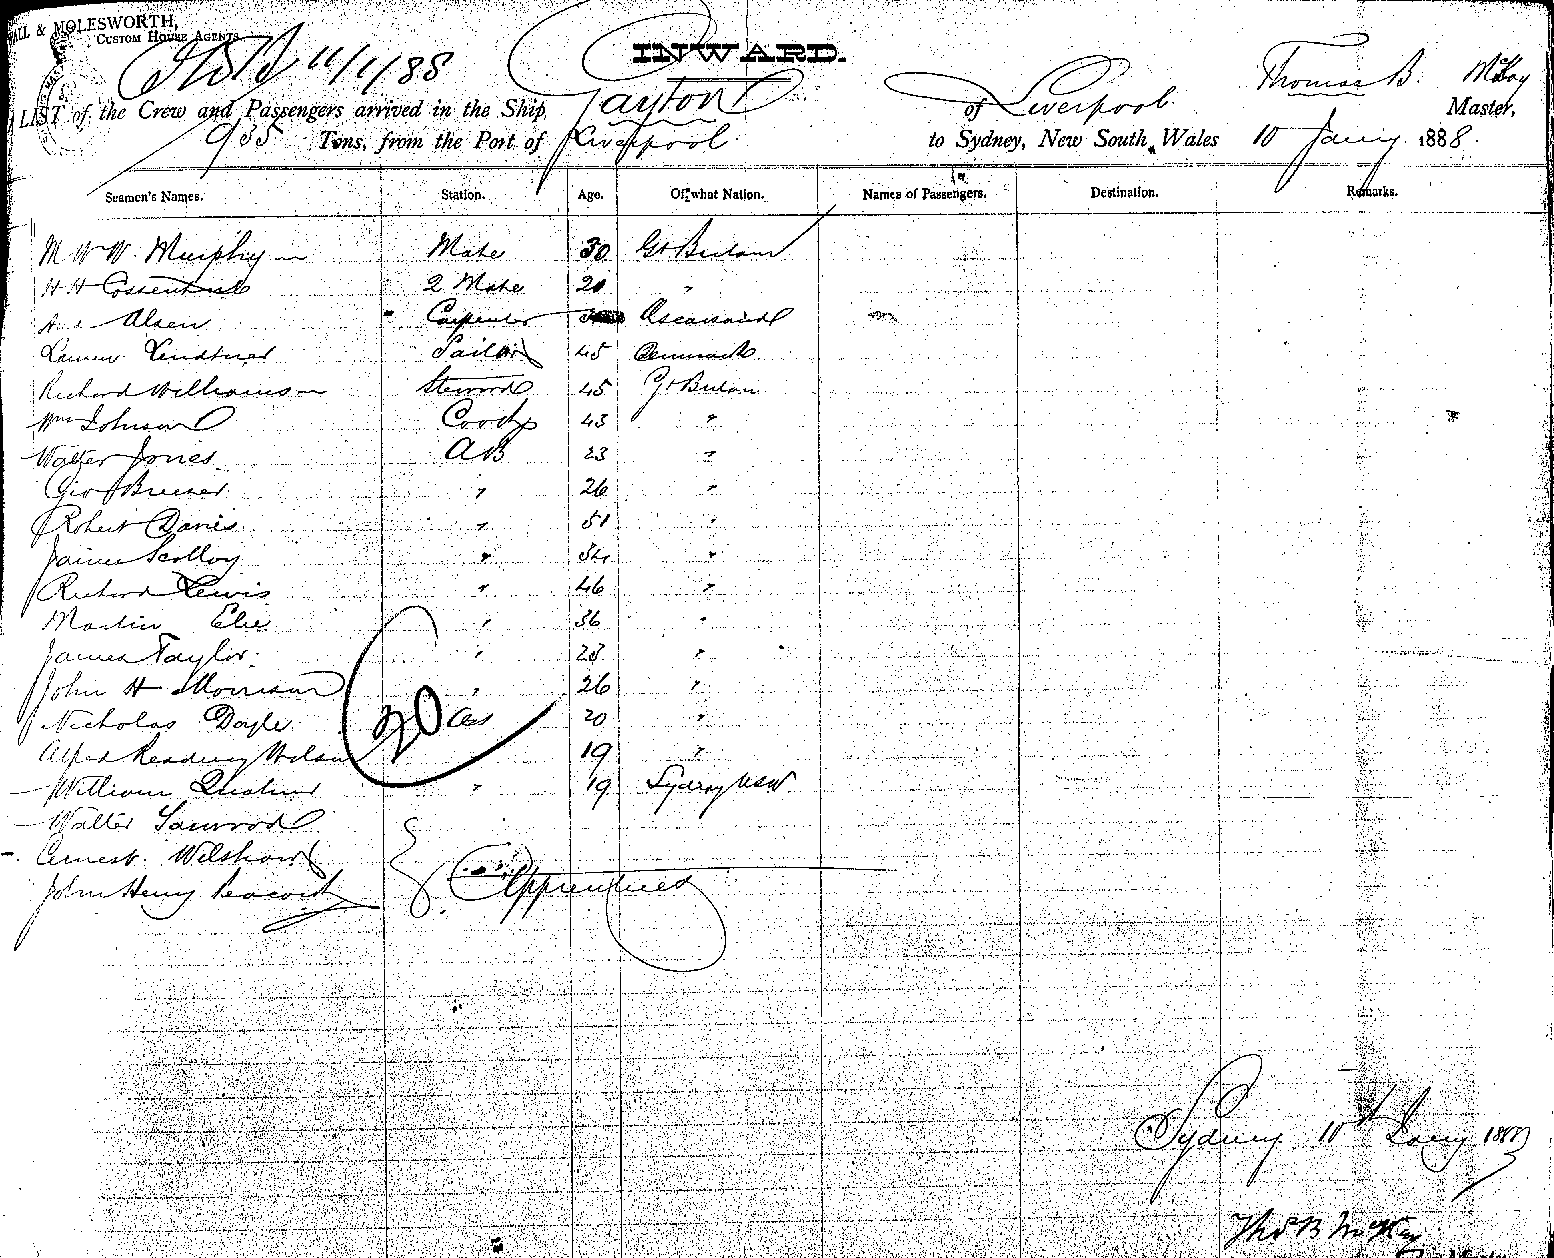 ALL & MOLESWORTH,
CUSTOM HOUSE AGENTS
11/1/88
INWARD.
LIST of the Crew and Passengers arrived in the Ship Gayton of Liverpool Thomas B. McKay Master,
935 Tons, from the Port of Liverpool to Sydney, New South Wales 10 Jany 1888.
Seamen's Names. Station. Age. Of what Nation. Names of Passengers. Destination. Remarks.
M W W. Murphy Mate 30 Gt Britain
H H 2 Mate "
Olsen Carpenter
Sailor 45 Denmark
Richard Williamson Steward 45 Gt Britain
Wm Johnson Cook 43 "
Walter Jones AB 23 "
Geo " 26 "
Robert Davies " 51 "
James Scolloy " 34 "
Richard Lewis " 46 "
Martin " 36 "
James Taylor " 23 "
John H Morrison " 26 "
Nicholas Doyle OS 20 "
Alfred Reading Wilson 19 "
William " 19 Sydney NSW
Walter
Ernest. Wilshaw
John Henry Peacock
20
Apprentices
Sydney 10th Jany 1888
Thos B McKay